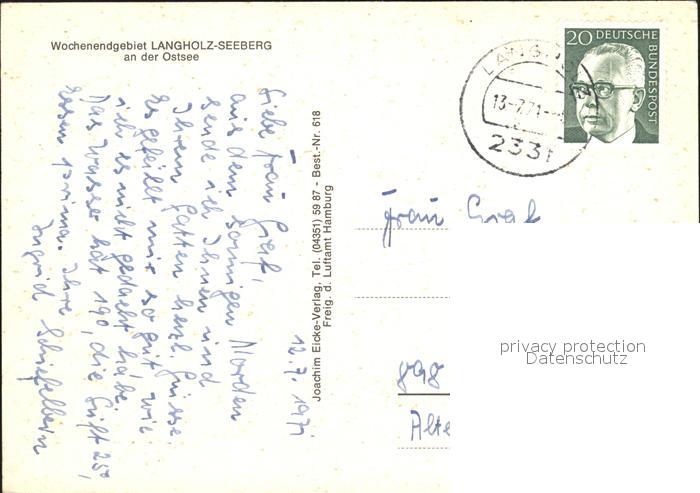 Wochenendgebiet LANGHOLZ-SEEBERG
an der Ostsee
12.7.1971
Liebe Frau Graf,
aus dem sonnigen Norden
sende ich Ihnen und
Ihrem Gatten herzl. Grüsse.
Es gefällt mir so gut wie
ich es nicht gedacht habe.
Das Wasser hat 19°, die Luft 25°,
Essen prima. Ihre
Ingrid Schiefelbein
Joachim Eicke-Verlag, Tel. (04351) 59 87 - Best.-Nr. 618
Freig. d. Luftamt Hamburg
13.-7.71.
2331
20 DEUTSCHE
BUNDESPOST
Frau Graf
privacy protection
Datenschutz
Alte